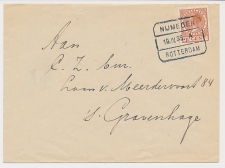 NIJMEGEN
ROTTERDAM
Aan
C. Z. Eur.
Laan v. Meerdervoort 84
's Gravenhage